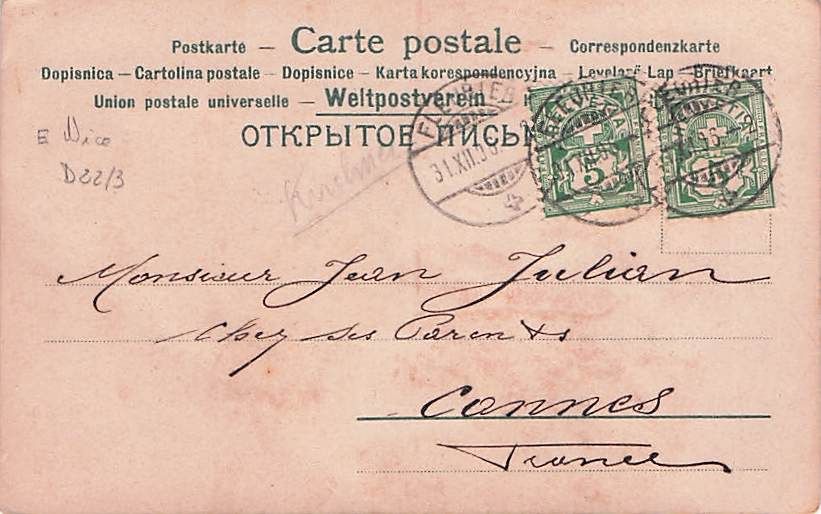 Postkarte – Carte postale – Correspondenzkarte
Dopisnica – Cartolina postale – Dopisnice – Karta korespondencyjna – Levelező-Lap – Briefkaart
Union postale universelle – Weltpostverein
ОТКРЫТОЕ ПИСЬ
E Nice
D22/3
Kirchner
FLEURIER
31.XII.
4
HELVETIA
5
FLEURIER
HELVETIA
Monsieur Jean Julian
chez ses Parents
Cannes
France